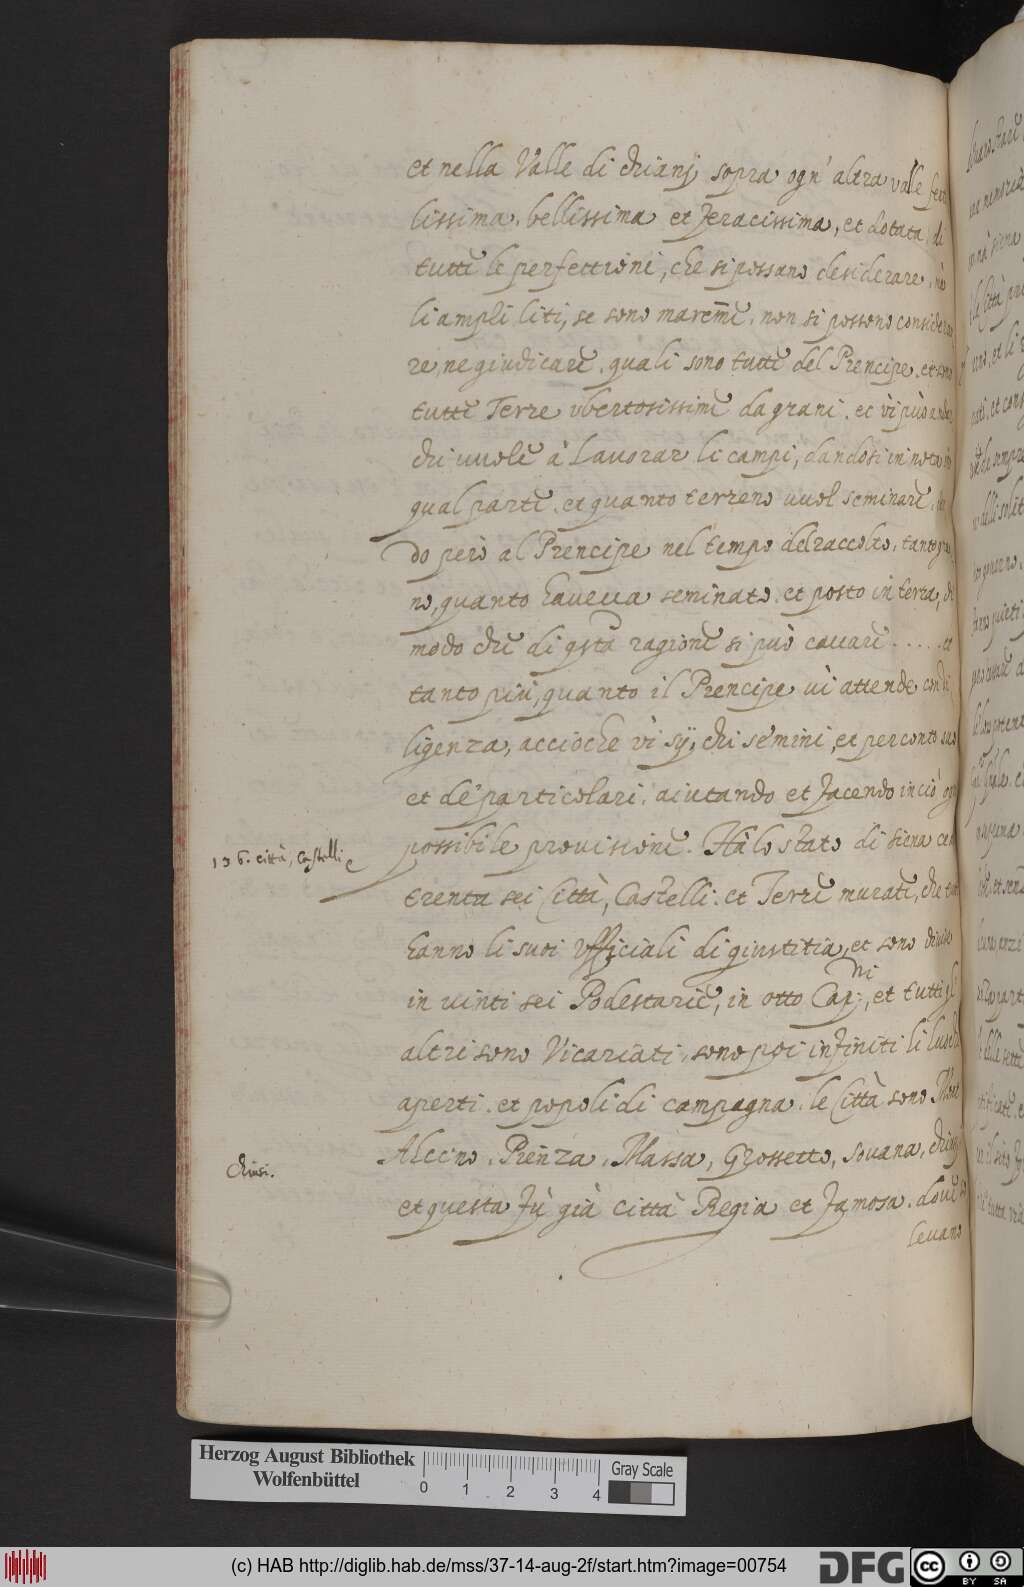 et nella Valle di chianj sopra ogn' altra valle ferti
lissima, bellissima et feracissima, et dotata di
tutte le perfettioni, che si possano desiderare,
li ampli liti, se sono maremme, non si possono considera
re, ne giudicare, quali sono tutte del Prencipe, et sono
tutte Terre ubertosissime da grani, et vi può andar
chi vuole à lavorar li campi, dandosi in nota in
qual parte, et quanto terreno vuol seminare,
do però al Prencipe nel tempo del raccolto, tanto gra
no, quanto haveva seminato, et posto in terra, di
modo che di qsta ragione si può cavare . . . . . et
tanto più, quanto il Prencipe vi attende con di
ligenza, accioche vi sij, chi semini, et per conto suo
et de' particolari, aiutando et facendo in ciò ogni
possibile provisione. Hà lo stato di siena cen
136. città, Castelli
trenta sei Città, Castelli, et Terre murate, che tutti
hanno li suoi ufficiali di giustitia, et sono divise
in vinti sei Podestarie, in otto Capni, et tutti gl
altri sono Vicariati, sono poi infiniti li luochi
aperti, et popoli di campagna, le Città sono Mont
Alcino, Pienza, Massa, Grossetto, Sovana, chiusi
Chiusi.
et questa fù già città Regia et famosa, dove so
levano
Herzog August Bibliothek
Wolfenbüttel
0 1 2 3 4
Gray Scale
(c) HAB http://diglib.hab.de/mss/37-14-aug-2f/start.htm?image=00754
DFG
cc BY SA